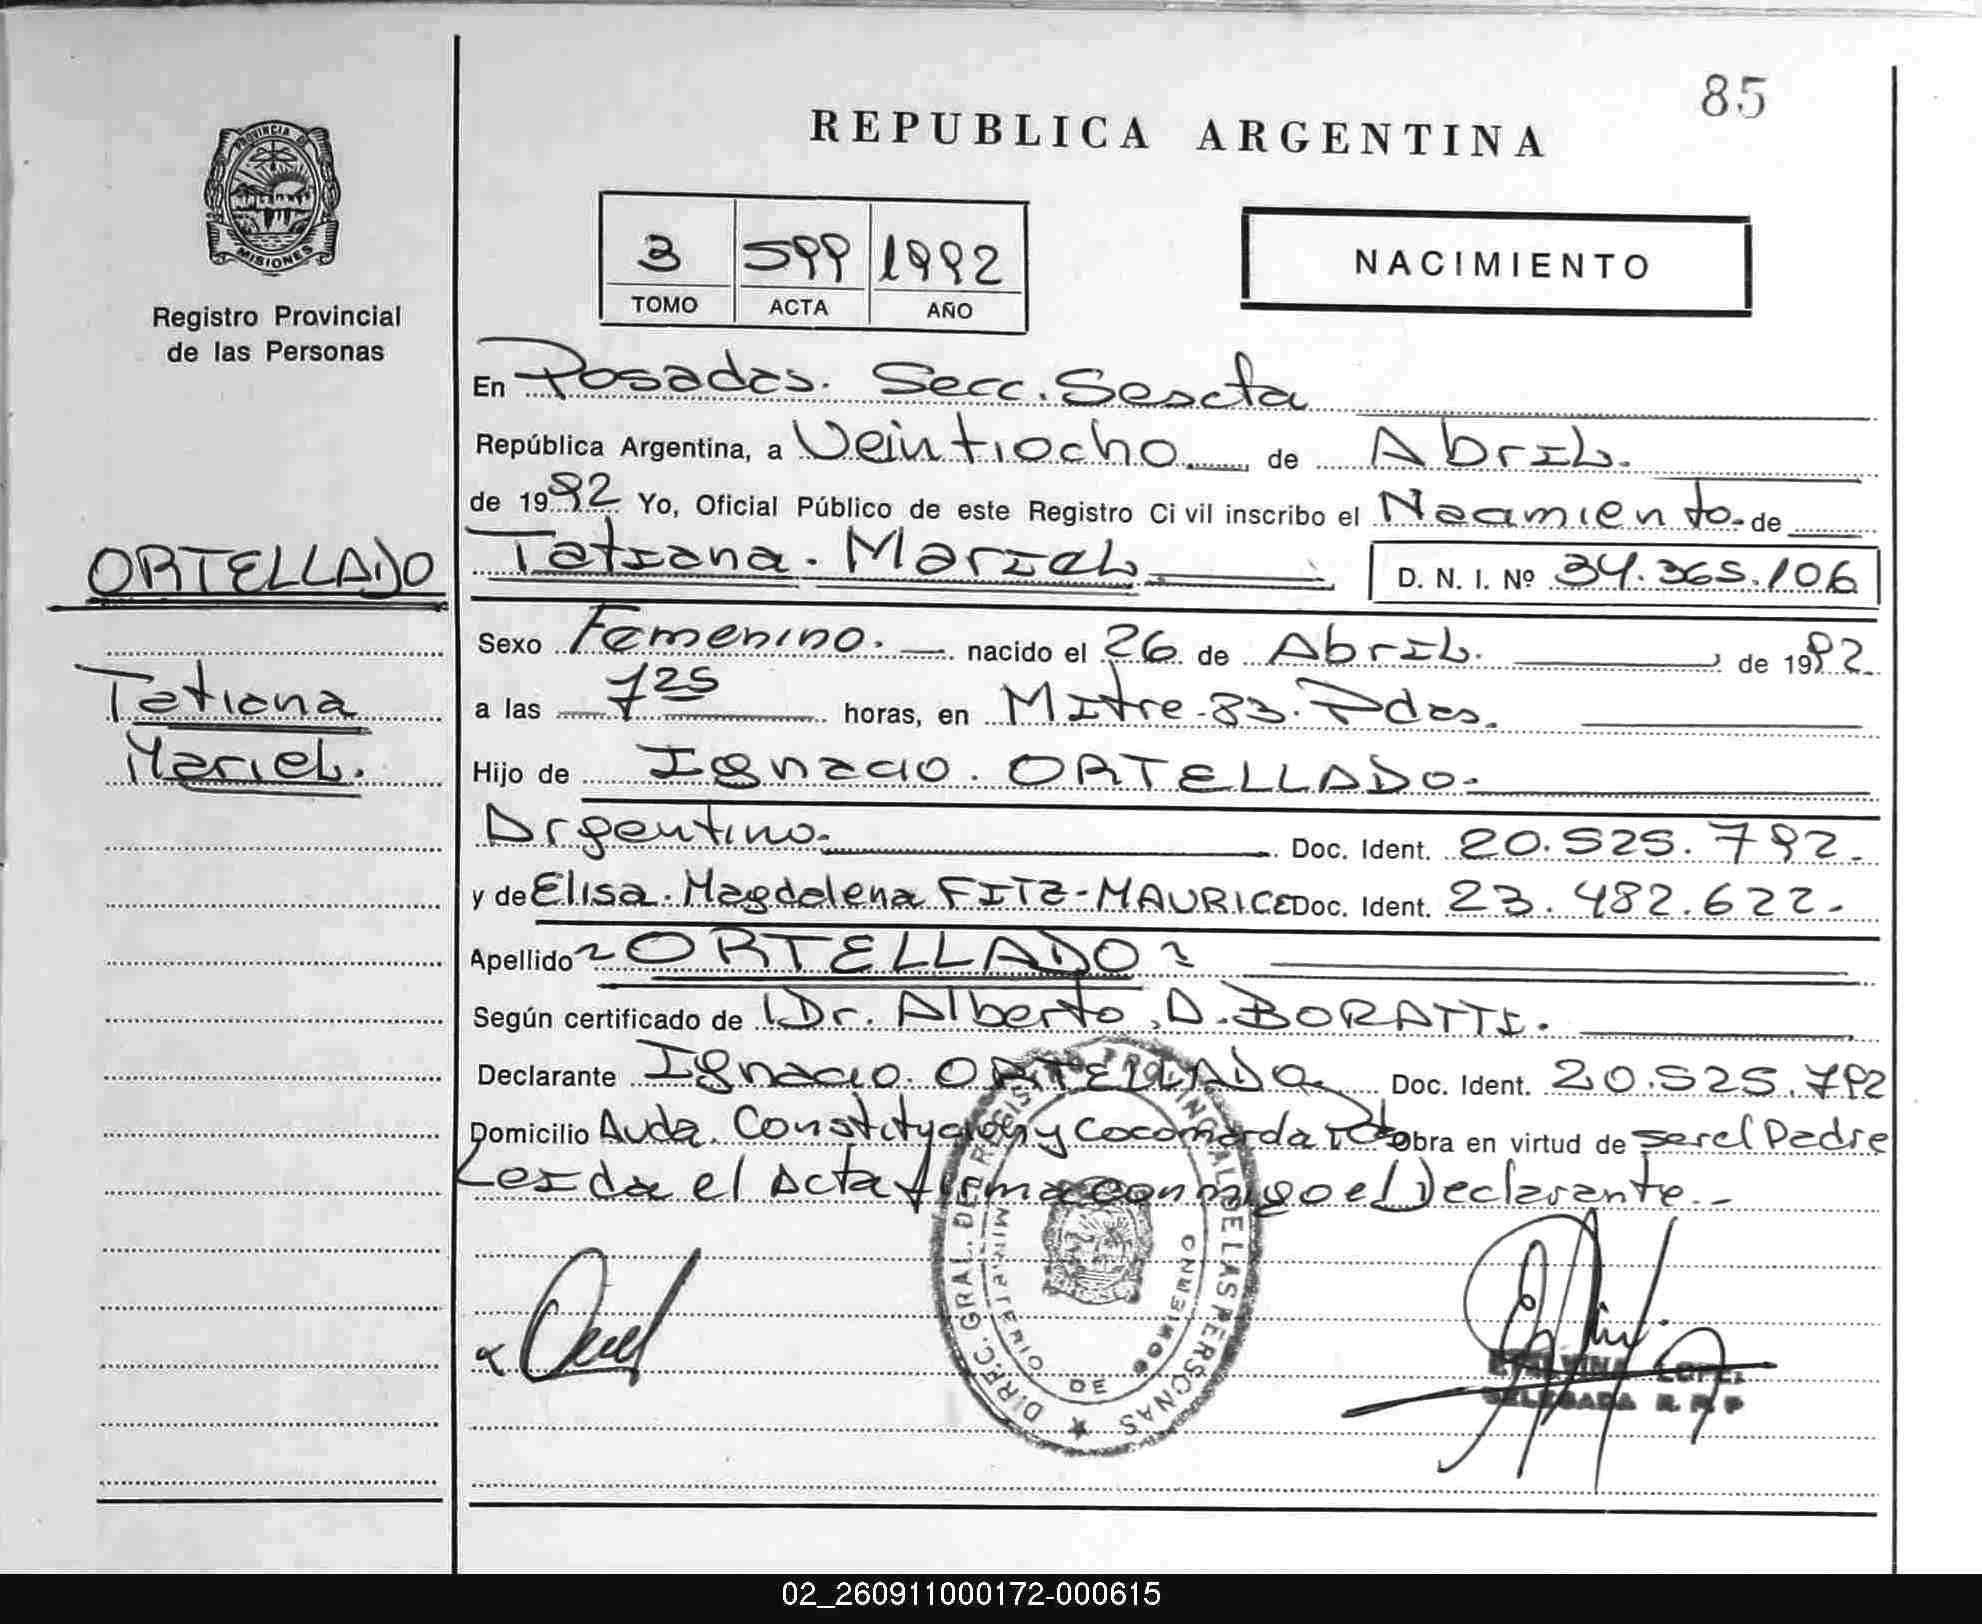 85
REPUBLICA ARGENTINA
PROVINCIA DE MISIONES
Registro Provincial
de las Personas
3 599 1992
TOMO ACTA AÑO
NACIMIENTO
En Posadas. Secc. Sescta
República Argentina, a Veintiocho de Abril.
de 1992 Yo, Oficial Público de este Registro Civil inscribo el Nacimiento de
ORTELLADO
Tatiana Mariel.
Tatiana. Mariel D. N. I. Nº 34.365.106
Sexo Femenino. nacido el 26 de Abril. de 1992.
a las 7 25 horas, en Mitre 83. Pdas.
Hijo de Ignacio. ORTELLADO.
Argentino. Doc. Ident. 20.525.792.
y de Elisa. Magdalena FITZ-MAURICE Doc. Ident. 23.482.622.
Apellido ORTELLADO
Según certificado de Dr. Alberto. A. BORATTI.
Declarante Ignacio. ORTELLADO. Doc. Ident. 20.525.792
Domicilio Avda. Constitución y Cocomarola obra en virtud de ser el Padre
Leida el Acta firma conmigo el Declarante.-
DIREC. GRAL. DE REGISTRO PROVINCIAL DE LAS PERSONAS
MINISTERIO DE GOBIERNO
DELEGADA R. P. P
02_260911000172-000615